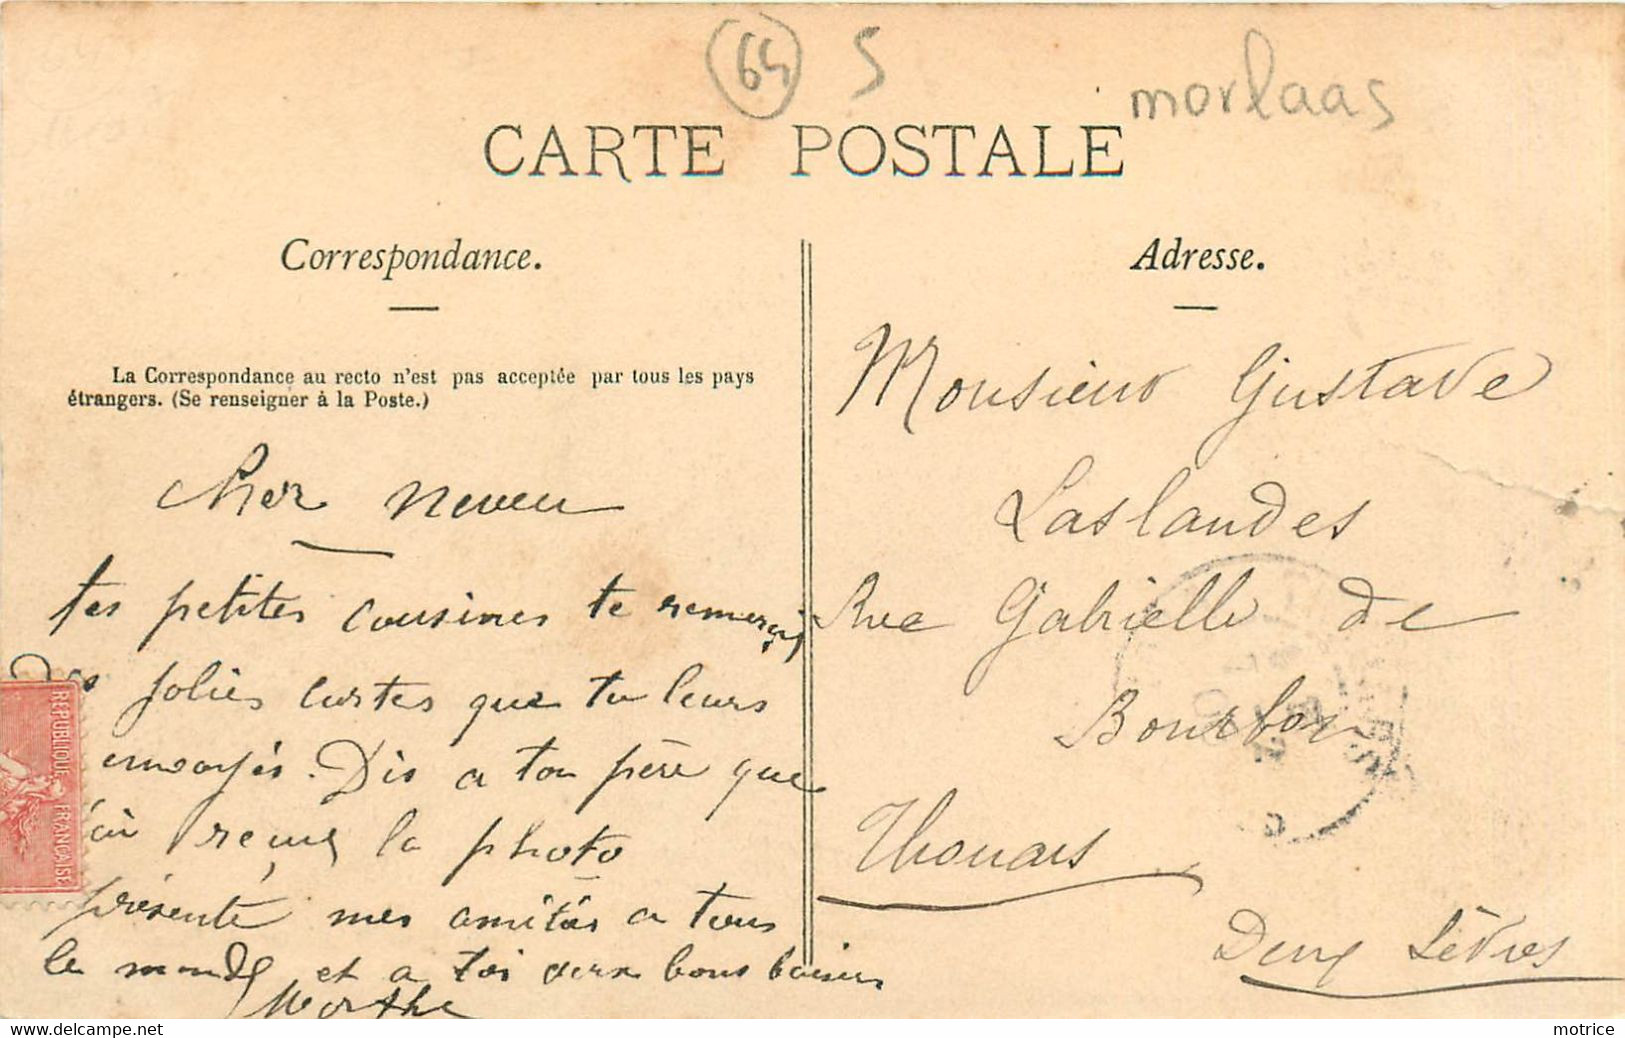 64 5 morlaas
CARTE POSTALE
Correspondance.
La Correspondance au recto n'est pas acceptée par tous les pays
étrangers. (Se renseigner à la Poste.)
Cher neveu
tes petites cousines te remercis
des jolies cartes que tu leurs
envoyés. Dis a ton père que
reçus la photo
présente mes amitiés a tous
le monde et a toi deux bons baisers
Marthe
REPUBLIQUE FRANÇAISE
Adresse.
Monsieur Gustave
Laslandes
Rue Gabrielle de
Bourbon
Thouars
Deux Sèvres
motrice